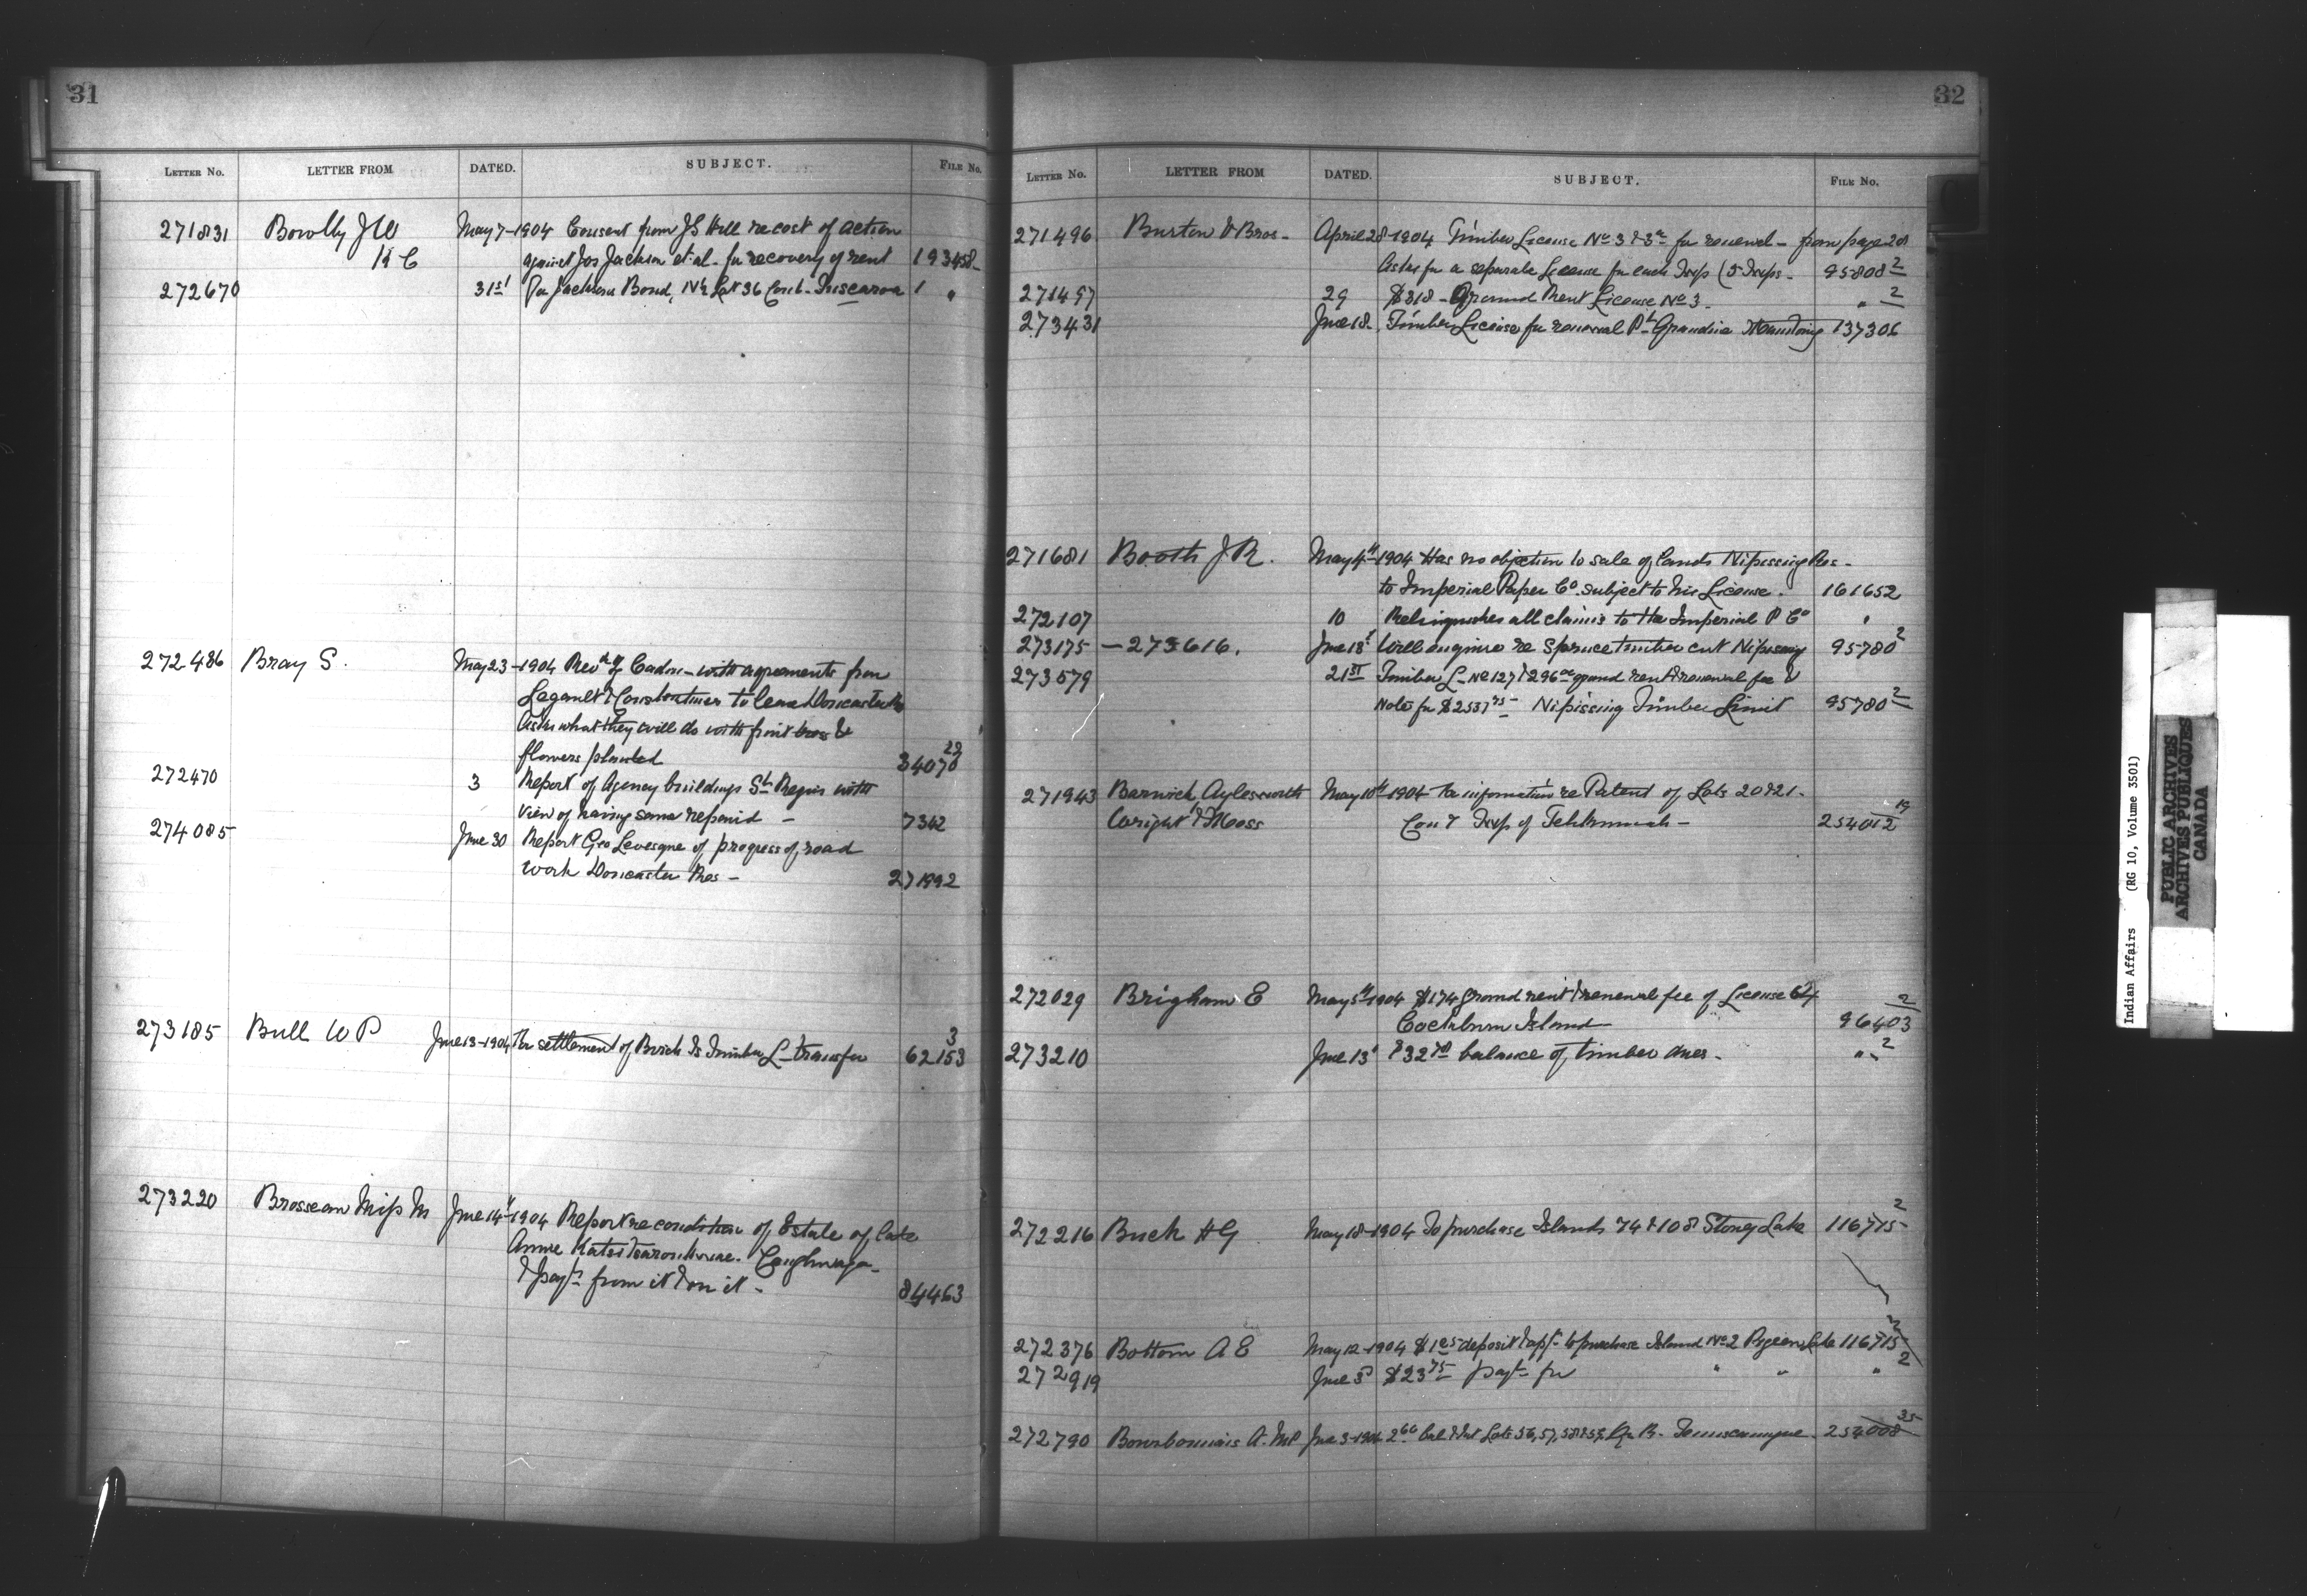 31
LETTER No. LETTER FROM DATED. SUBJECT. FILE No.
271831 Bowlby J W May 7-1904 Consent from J S Hill re cost of action
K C against Jos Jackson et al - for recovery of rent 193458-
272670 31st Jackson Bond, N½ Lot 36 Con 6 - Tuscarora 1 "
272486 Bray S. May 23-1904 Rev of Cadou - with agreements from
Legault & to lease Doncaster Res
Asks what they will do with fruit trees &
flowers planted 34070 22
272470 3 Report of Agency buildings St Regis with
view of having same repaired - 7342
274085 June 30 Report Geo Levesque of progress of road
work Doncaster Res - 271992
273185 Bull W P June 13-1904 Re settlement of Birch Is Timber L - transfer 62153 3
273220 Brosseau Miss M June 14th 1904 Report re condition of Estate of late
Annie Caughnawaga -
& payt from it & on it - 84463
32
LETTER No. LETTER FROM DATED. SUBJECT. FILE No.
271496 Burton & Bros - April 28-1904 Timber License No 3 & 3a for renewal - from page 28
Asks for a separate License for each Twp (5 Twps - 95808 2
271497 29 $318 - Ground Rent License No 3 - " 2
273431 June 18 - Timber License for renewal Pt Grondine 137306
271681 Booth J R. May 4th 1904 Has no objection to sale of lands Nipissing Res -
to Imperial Paper Co. subject to his License. 161652
272107 10 Relinquishes all claims to the Imperial P Co "
273175 - 273616. June 18 Will enquire re Spruce timber cut Nipissing 95780 2
273579 21st Timber L - No 127 & 296 ground rent & renewal fee &
Note for $2537 75 - Nipissing Timber Limit 95780 2
271943 Barwick Aylesworth May 10th 1904 Re information re Patent of Lots 20 & 21 -
Wright & Moss Con 7 Twp of Tehkummah - 254012 19
272029 Brigham E May 5th 1904 $174 ground rent & renewal fee of License 64 2
Cockburn Island 96403
273210 June 13 $32 balance of timber dues - " 2
272216 Buck H G May 18-1904 To purchase Islands 74 & 108 Stoney Lake 116715 2
272376 Bottom A E May 12-1904 $1 25 deposit & appt to purchase Island No 2 Pigeon Lake 116715 2
272919 June 3 $23 75 payt for " " " 2
272790 Bourbonnais A. MP June 3-1904 2 60 bal & Int Lots 56, 57, 58 & 59, R. Temiscamingue 254008 35
Indian Affairs (RG 10, Volume 3501)
PUBLIC ARCHIVES
ARCHIVES PUBLIQUES
CANADA